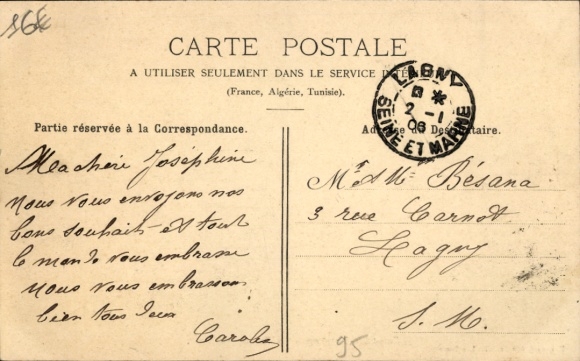 CARTE POSTALE
A UTILISER SEULEMENT DANS LE SERVICE INTÉRIEUR
(France, Algérie, Tunisie).
LAGNY
2 - 1
06
SEINE ET MARNE
Partie réservée à la Correspondance.
Adresse du Destinataire.
Ma chère Joséphine
nous vous envoyons nos
bons souhaits et tout
le monde vous embrasse
nous vous embrassons
bien tous deux
Mr & Me Bésana
3 rue Carnot
Lagny
S. M.
95